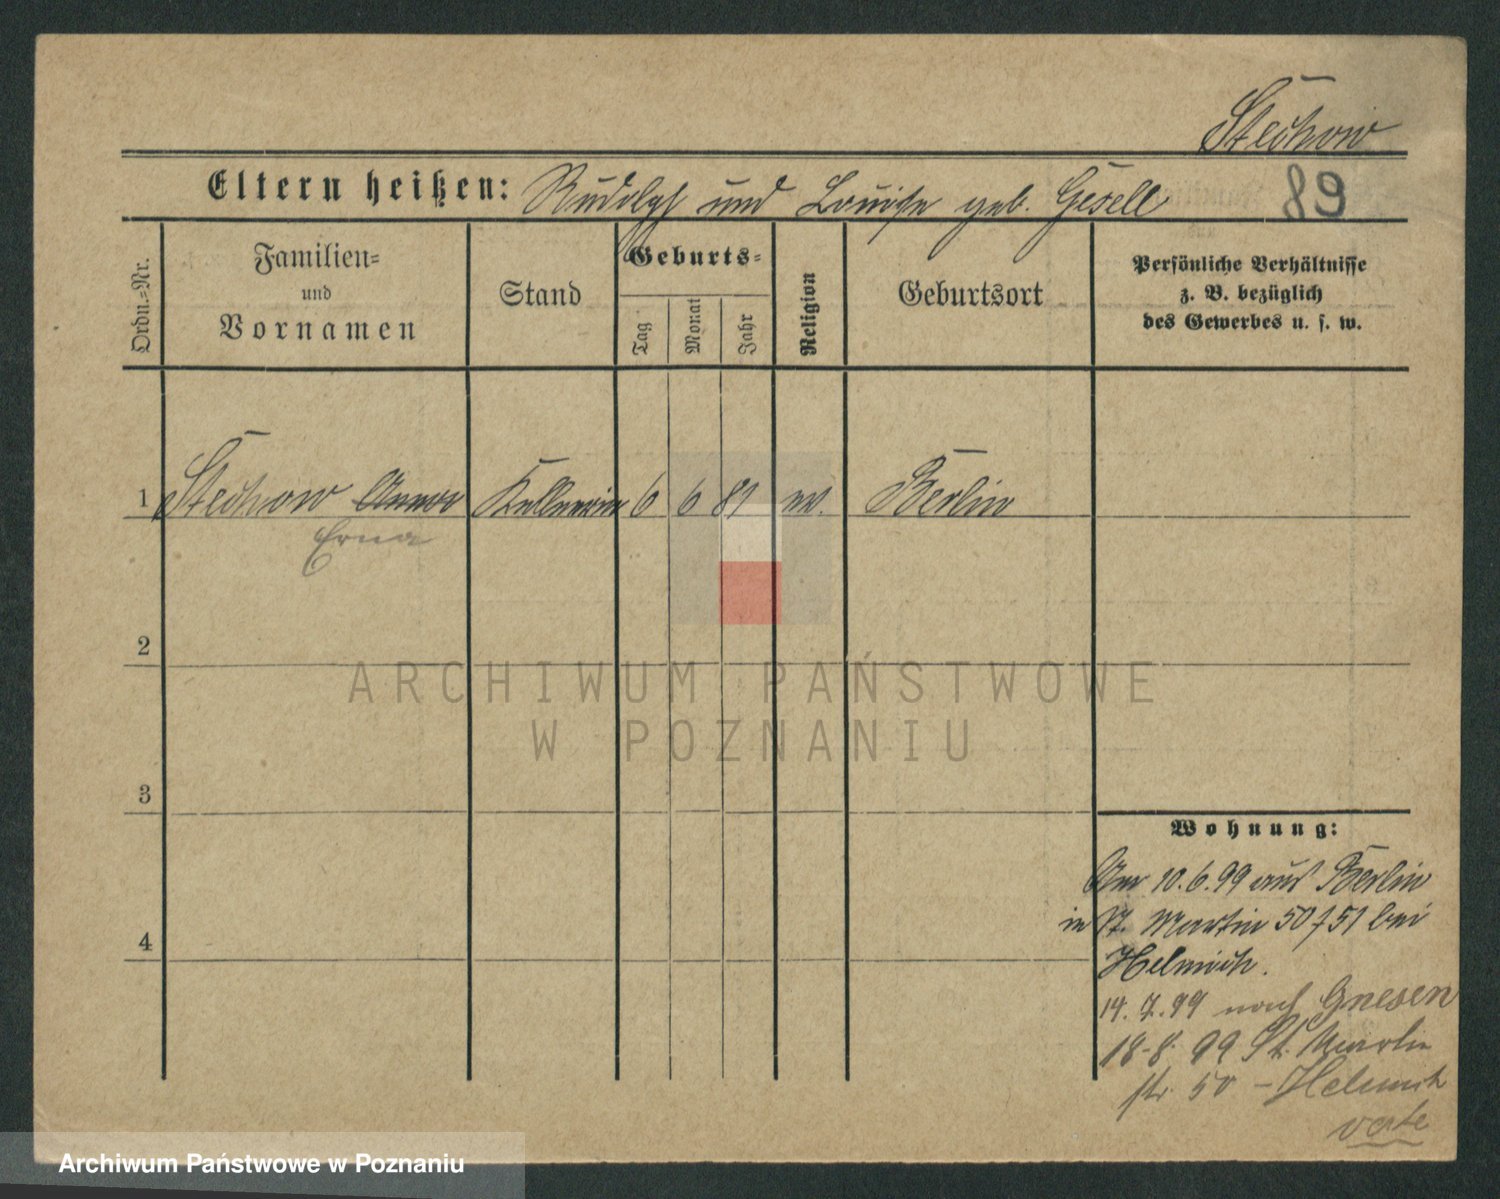 Stechow
Eltern heißen: Rudolf und Louise geb. Gesell 89
Ordn.=Nr.
Familien=
und
Vornamen
Stand
Geburts=
Tag
Monat
Jahr
Religion
Geburtsort
Persönliche Verhältnisse
z. B. bezüglich
des Gewerbes u. s. w.
1 Stechow Anna Kellnerin 6 6 81 ev. Berlin
Erna
2
ARCHIWUM PAŃSTWOWE
W POZNANIU
3
Wohnung:
Am 10.6.99 aus Berlin
in St. Martin 50/51 bei
4
Helmich.
14.7.99 nach Gnesen
18-8. 99 St. Martin
str. 50 – Helmich
verte
Archiwum Państwowe w Poznaniu